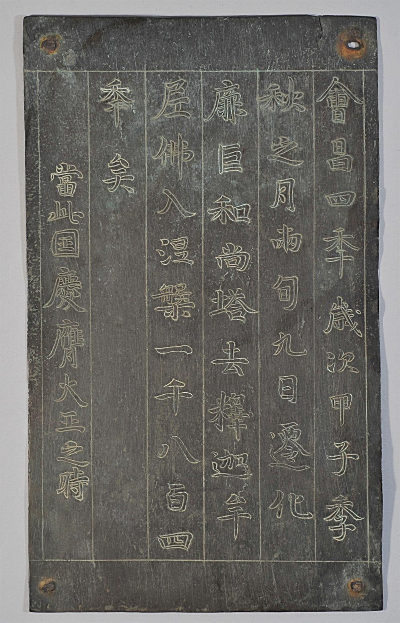 會昌四秊歲次甲子季
秋之月兩旬九日遷化
廉巨和尚塔去釋迦牟
尼佛入涅槃一千八百四
秊矣
當此国慶膺大王之時